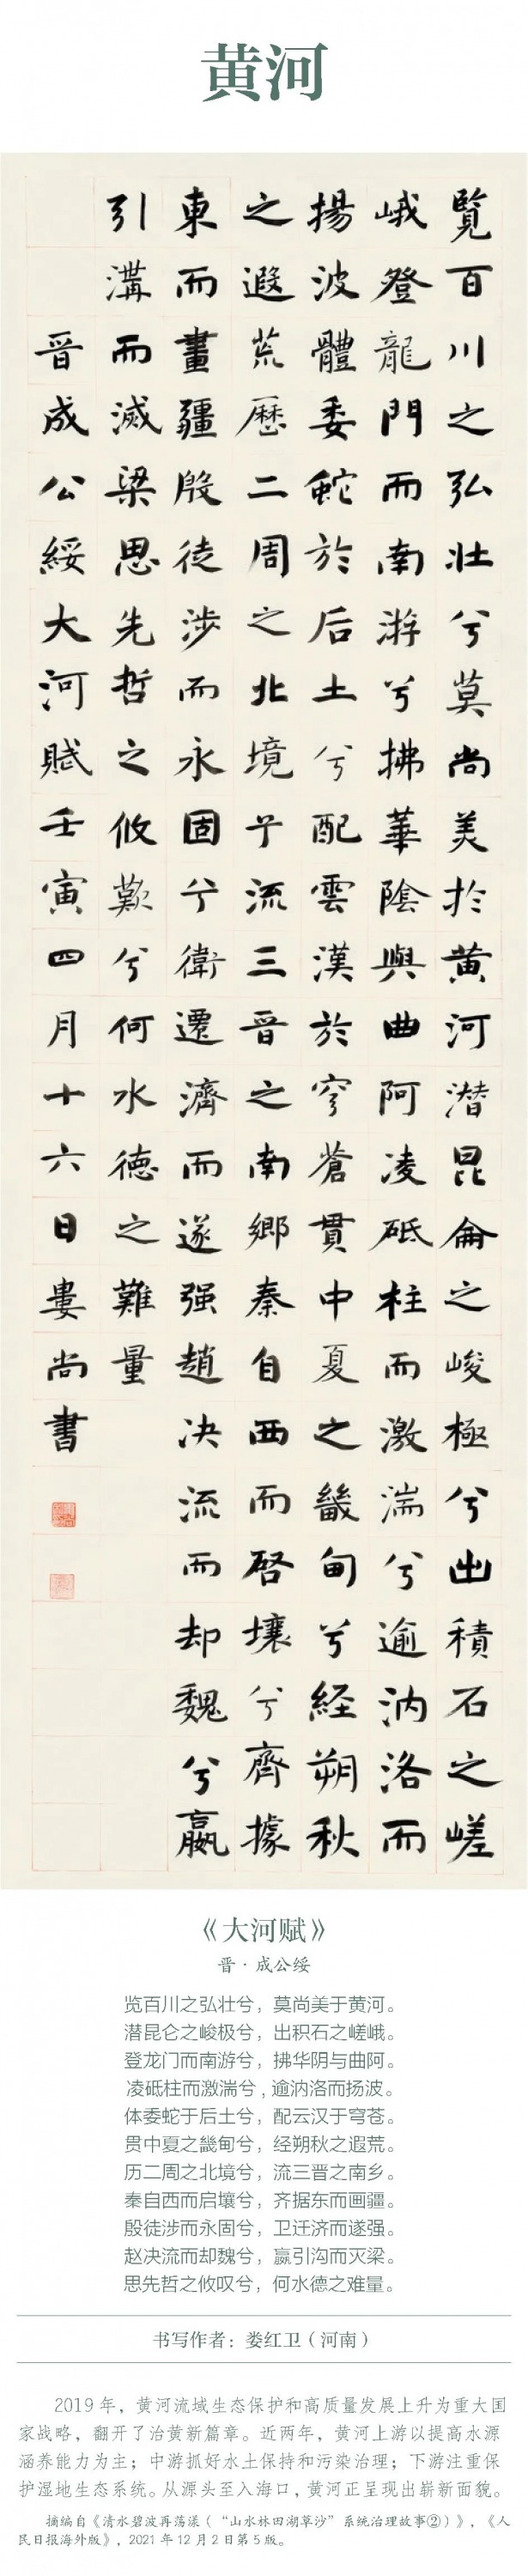 黄河
覽百川之弘壯兮莫尚美於黄河潜昆侖之峻極兮出積石之嵯
峨登龍門而南游兮拂華陰與曲阿凌砥柱而激湍兮逾汭洛而
揚波體委蛇於后土兮配雲漢於穹蒼貫中夏之畿甸兮経朔秋
之遐荒歷二周之北境兮流三晋之南鄉秦自西而啓壤兮齊據
東而畫疆殷徒涉而永固兮衛遷濟而遂强趙决流而却魏兮嬴
引溝而滅梁思先哲之攸歎兮何水德之難量
晋成公綏大河賦壬寅四月十六日婁尚書
《大河赋》
晋·成公绥
览百川之弘壮兮，莫尚美于黄河。
潜昆仑之峻极兮，出积石之嵯峨。
登龙门而南游兮，拂华阴与曲阿。
凌砥柱而激湍兮，逾汭洛而扬波。
体委蛇于后土兮，配云汉于穹苍。
贯中夏之畿甸兮，经朔秋之遐荒。
历二周之北境兮，流三晋之南乡。
秦自西而启壤兮，齐据东而画疆。
殷徒涉而永固兮，卫迁济而遂强。
赵决流而却魏兮，嬴引沟而灭梁。
思先哲之攸叹兮，何水德之难量。
书写作者：娄红卫（河南）
2019年，黄河流域生态保护和高质量发展上升为重大国
家战略，翻开了治黄新篇章。近两年，黄河上游以提高水源
涵养能力为主；中游抓好水土保持和污染治理；下游注重保
护湿地生态系统。从源头至入海口，黄河正呈现出崭新面貌。
摘编自《清水碧波再荡漾（“山水林田湖草沙”系统治理故事②）》，《人
民日报海外版》，2021年12月2日第5版。